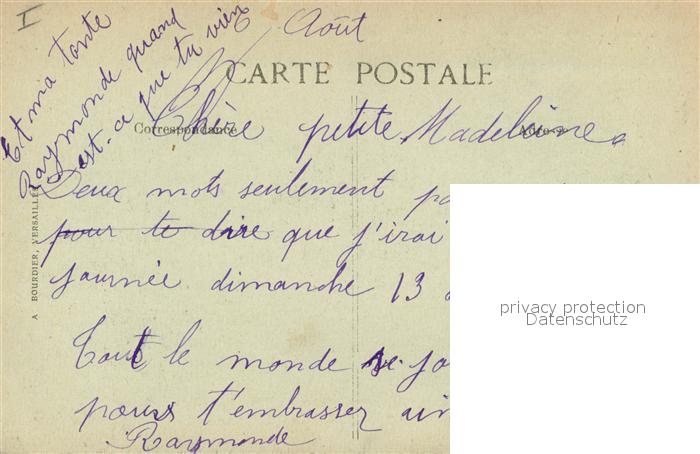 I
Août
Et ma tante
Raymonde quand
est-ce que tu vien
CARTE POSTALE
Correspondance
Chère petite Madeleine
Deux mots seulement
pour te dire que j'irai
journée dimanche 13
Tout le monde se
pour t'embrasser
Raymonde
A BOURDIER, VERSAILLES
privacy protection
Datenschutz